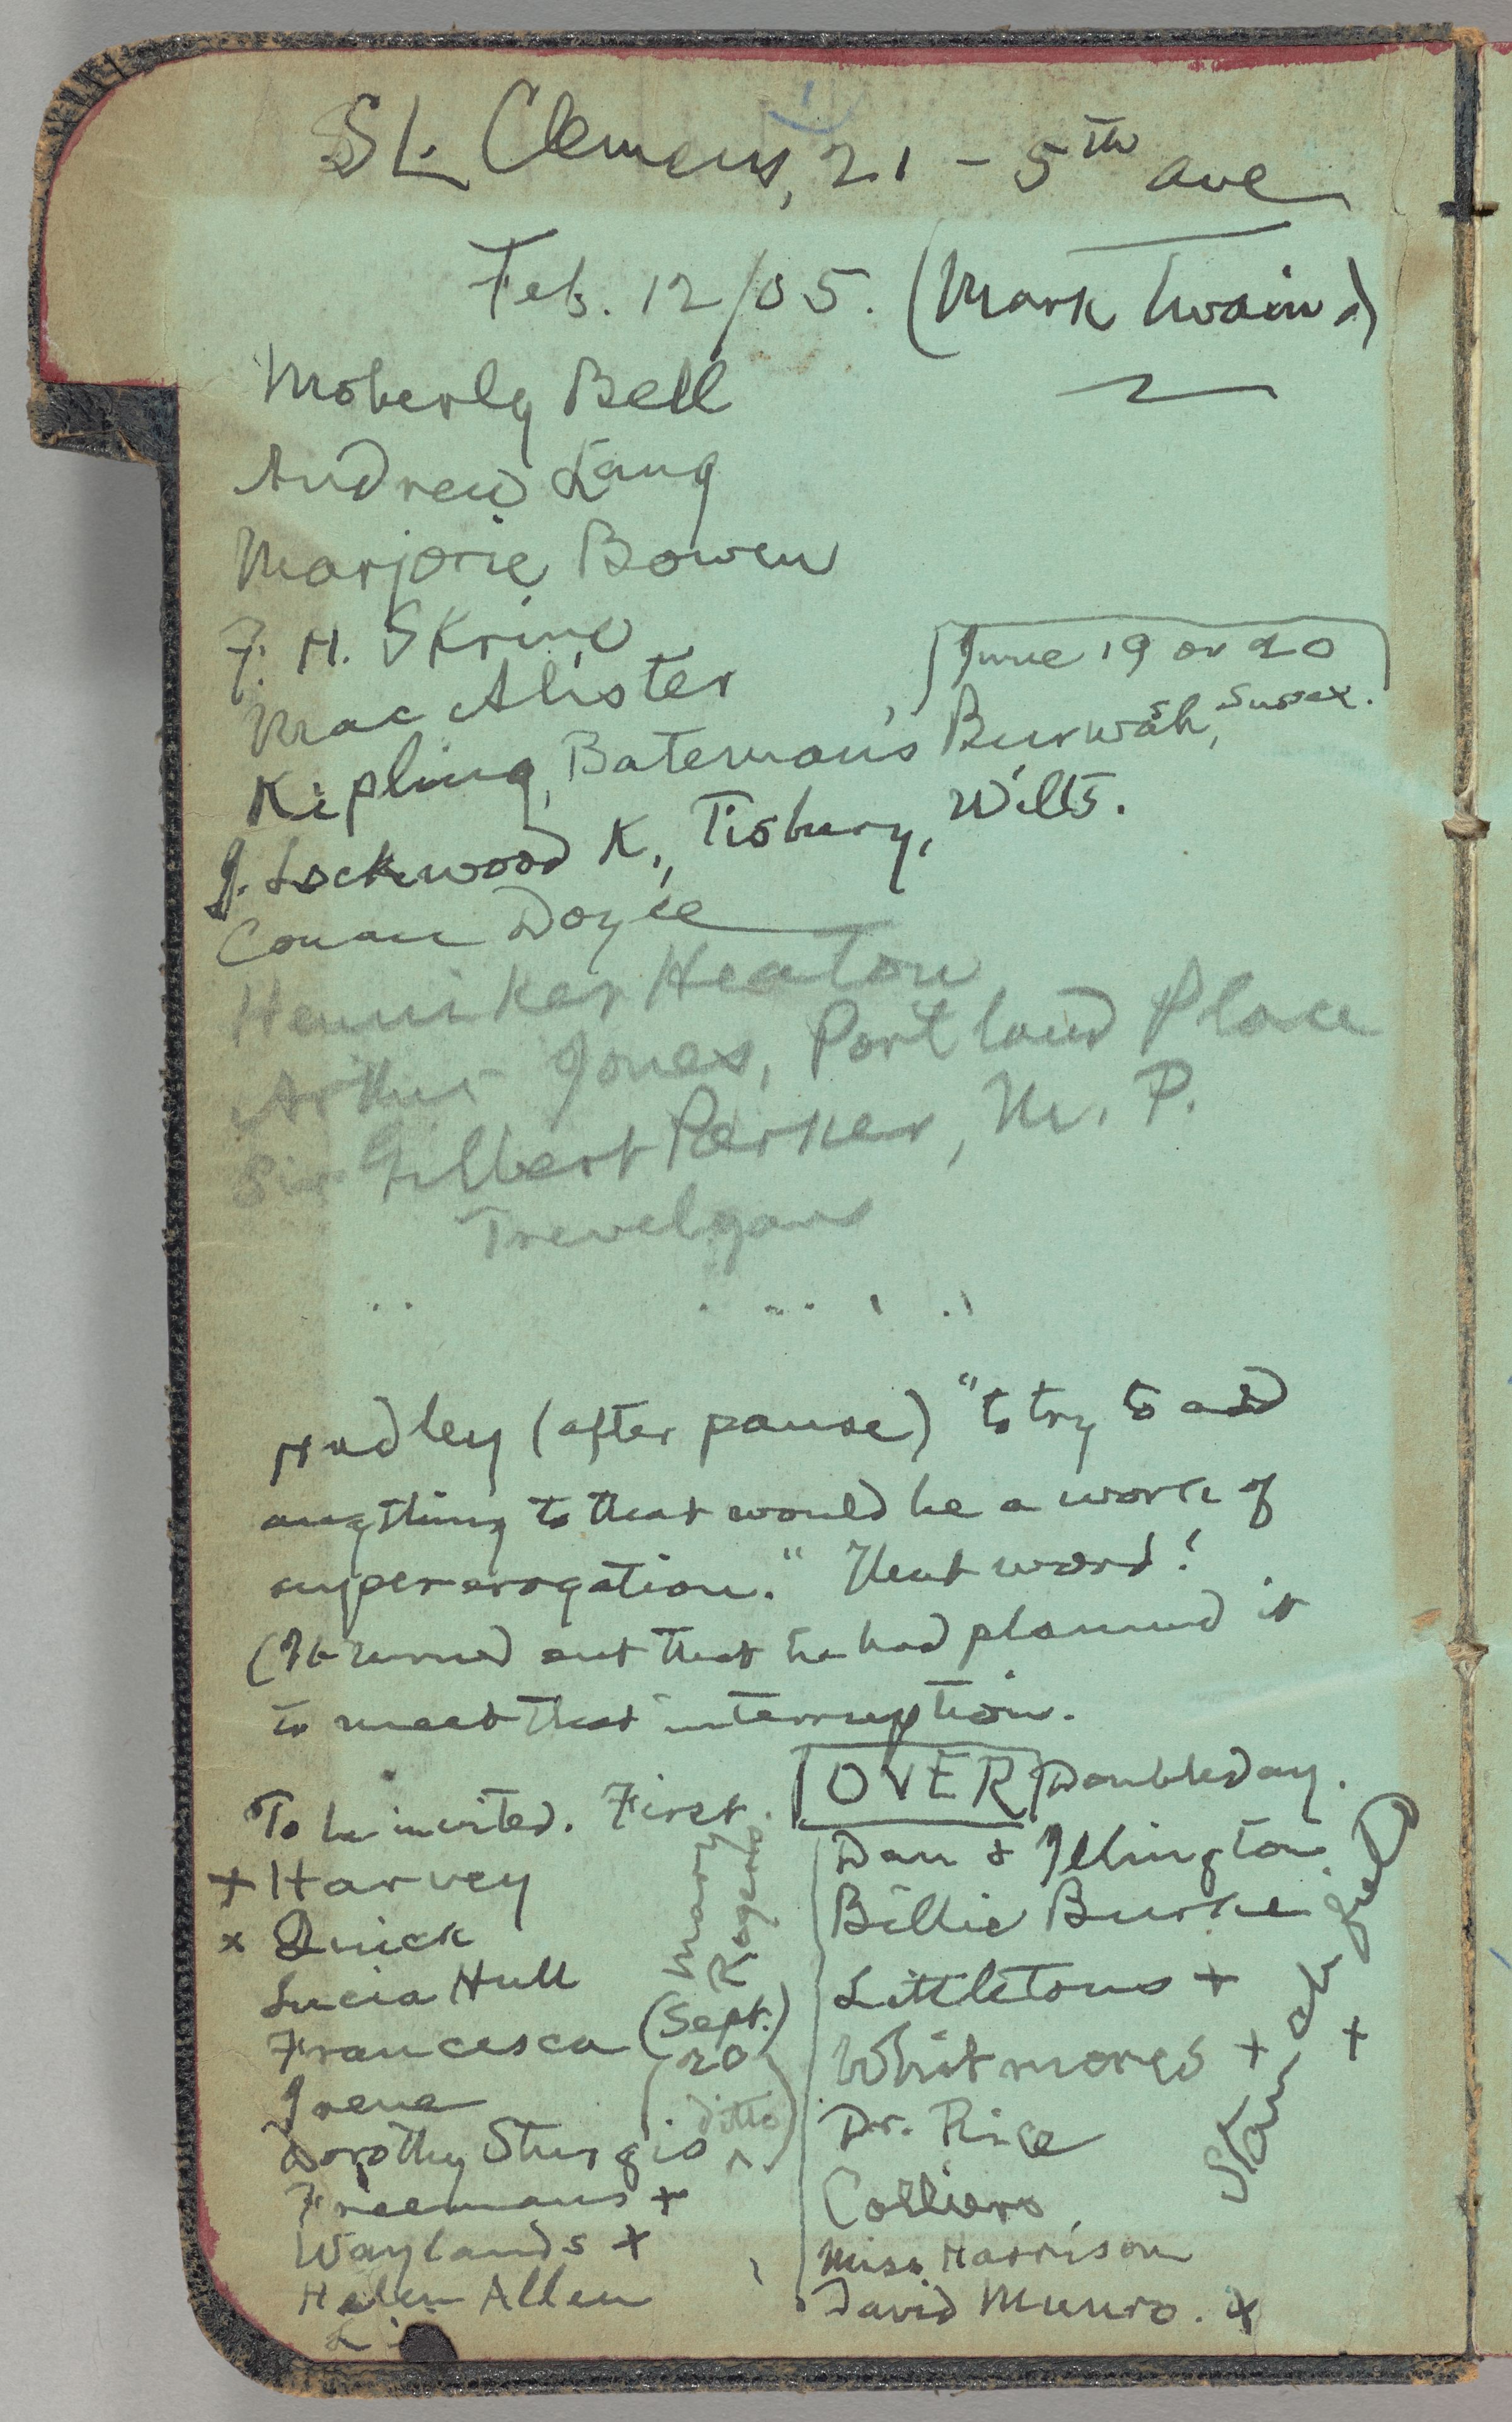 SL. Clemens, 21 - 5th ave
Feb. 12/05. (Mark Twain)
Moberly Bell
Andrew Lang
Marjorie Bowen
F. H. Skrine
MacAlister
June 19 or 20
Kipling, Bateman's Burwash, Sussex.
J. Lockwood K., Tisbury, Wilts.
Conan Doyle
Henniker Heaton
Arthur Jones, Portland Place
Sir Gilbert Parker, M. P.
Trevelyans
Hadley (after pause) "to try to add
anything to that would be a work of
supererogation." That word!
(It turned out that he had planned it
to meet that interruption.
OVER Doubleday.
To be invited. First.
+ Harvey
x Quick
Lucia Hull
Francesca (Sept. 20)
Irene
Dorothy Sturgis (ditto)
Freemans +
Waylands +
Helen Allen
Mary Rogers.
Dan & Illington
Billie Burke
Littletons +
Whitmores +
Dr. Rice
Colliers
Miss Harrison
David Munro. x
Stanchfield +